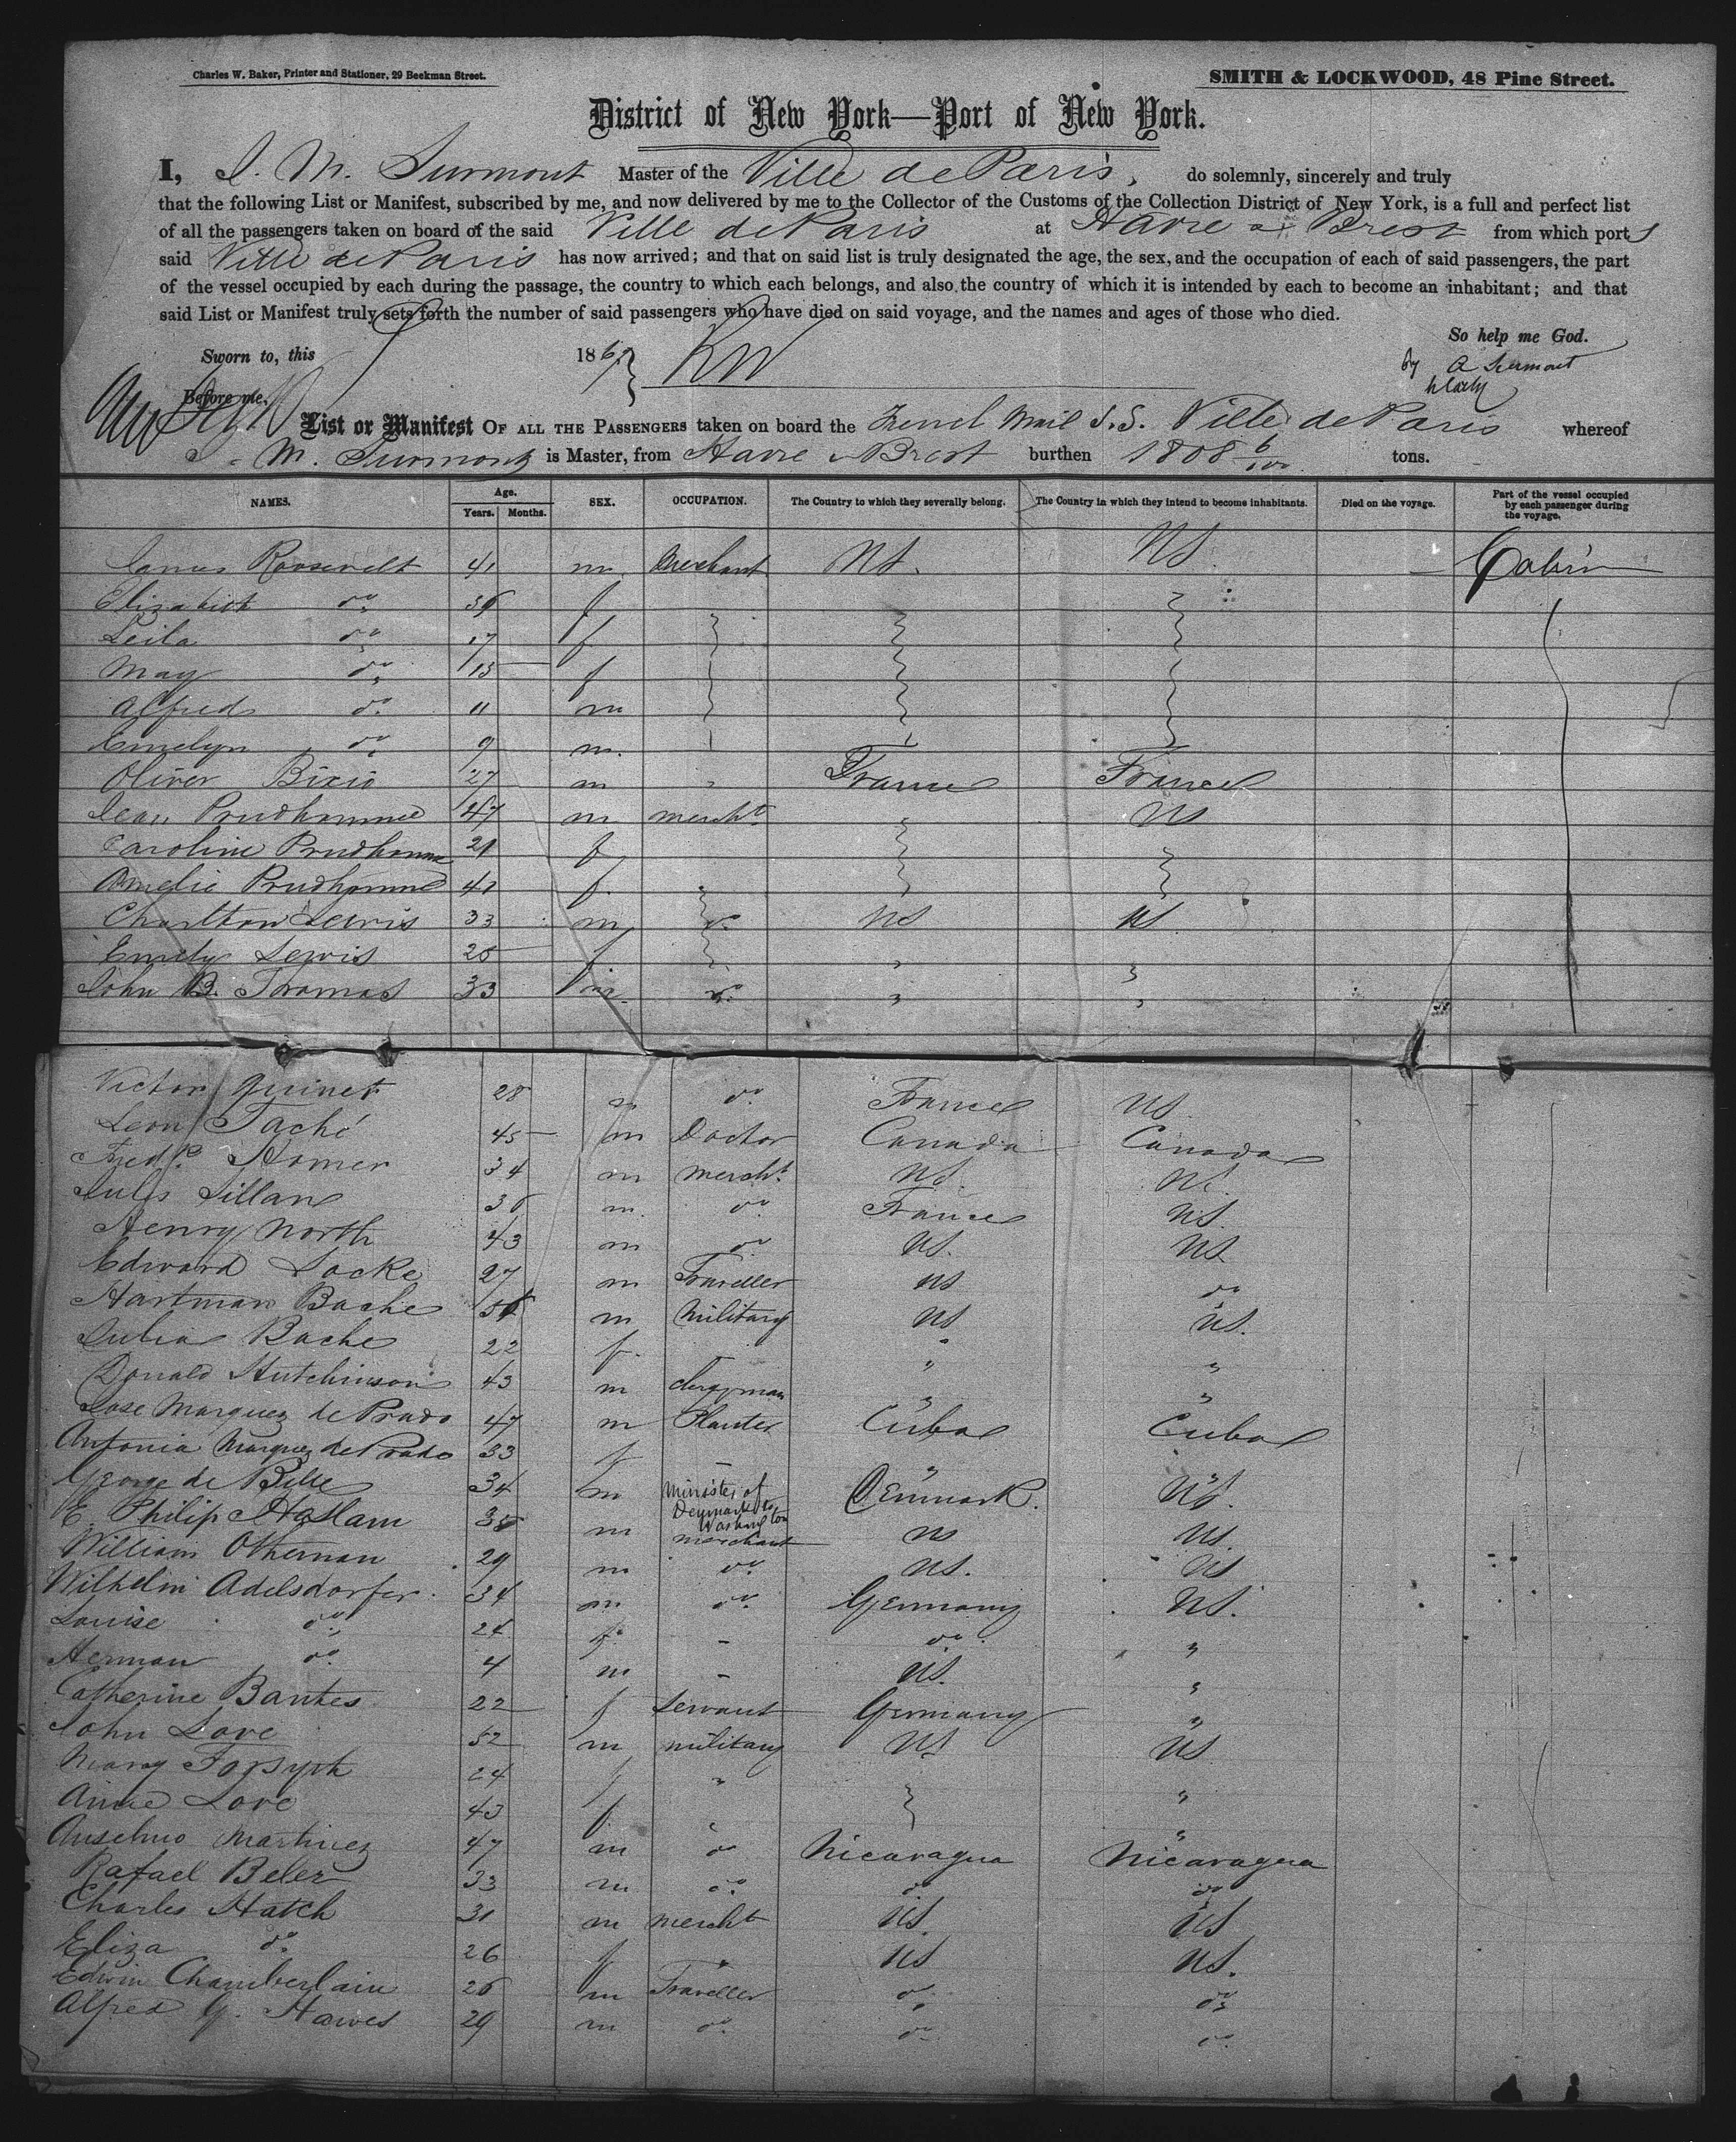 Charles W. Baker, Printer and Stationer, 29 Beekman Street.
SMITH & LOCKWOOD, 48 Pine Street.
District of New York—Port of New York.
I, J. M. Surmont Master of the Ville de Paris, do solemnly, sincerely and truly
that the following List or Manifest, subscribed by me, and now delivered by me to the Collector of the Customs of the Collection District of New York, is a full and perfect list
of all the passengers taken on board of the said Ville de Paris at Havre & Brest from which ports
said Ville de Paris has now arrived; and that on said list is truly designated the age, the sex, and the occupation of each of said passengers, the part
of the vessel occupied by each during the passage, the country to which each belongs, and also the country of which it is intended by each to become an inhabitant; and that
said List or Manifest truly sets forth the number of said passengers who have died on said voyage, and the names and ages of those who died.
So help me God.
Sworn to, this 186
by A Surmont
Before me,
List or Manifest OF ALL THE PASSENGERS taken on board the French Mail S.S. Ville de Paris whereof
J. M. Surmont is Master, from Havre & Brest burthen 1808 6/100 tons.
NAMES. Age. Years. Months. SEX. OCCUPATION. The Country to which they severally belong. The Country in which they intend to become inhabitants. Died on the voyage. Part of the vessel occupied by each passenger during the voyage.
James Roosevelt 41 m. Merchant US. US. Cabin
Elizabeth do 36 f
Leila do 17 f
May do 13 f
Alfred do 11 m
Emelyn do 9 m.
Oliver Bixio 27 m " France France
Jean Prudhomme 47 m mercht " US
Caroline Prudhomme 21 f
Amelie Prudhomme 41 f.
Charlton Lewis 33 m do US US
Emily Lewis 25 f " "
John B. Thomas 33 m. do " "
Victor Quinet 28 m do. France US.
Leon Taché 45 m Doctor Canada Canada
Fredk. Homer 34 m mercht. US. US.
Jules Sillan 36 m. do France US.
Henry North 43 m do US. US
Edward Locke 27 m Traveller US do
Hartman Bache m military US US.
Julia Bache 22 f. " "
Donald Hutchinson 43 m clergyman " "
Jose Marquez de Prado 47 m Planter Cuba Cuba
Antonia Marquez de Prado 33 f – " "
George de Bille 34 m Minister of Denmark to Washington Denmark. US.
E. Philip Haslam 35 m merchant US US.
William Otheman 29 m do US. US
Wilhelm Adelsdorfer 34 m do. Germany US.
Louise do 24 f. – do. "
Herman do 4 m – US. "
Catherine Bantes 22 f Servant Germany "
John Love 52 m military US US
Mary Forsyth 24 f " "
Anne Love 43 f "
Anselmo Martinez 47 m do Nicaragua Nicaragua
Rafael Beler 33 m do. do do
Charles Hatch 31 m mercht US. US
Eliza do. 26 f " US US.
Edwin Chamberlain 26 m Traveller do do
Alfred G. Hawes 29 m do. do do